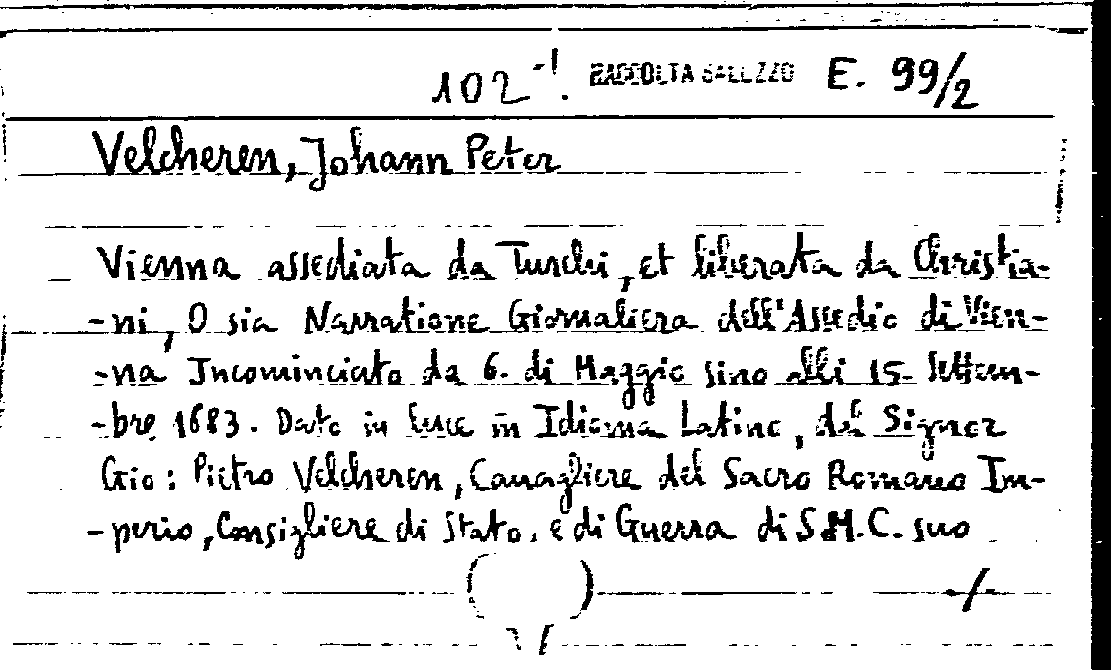 102-1. RACCOLTA GALLIZZO E. 99/2
Velcheren, Johann Peter
Vienna assediata da Turchi, et liberata da Christia-
-ni, O sia Narratione Giornaliera dell'Assedio di Vien-
-na Incominciato da 6. di Maggio sino alli 15. Settem-
-bre 1683. Dato in luce in Idioma Latino, dal Signor
Gio: Pietro Velcheren, Cavagliere del Sacro Romano Im-
-perio, Consigliere di Stato, e di Guerra di S.M.C. suo
./.